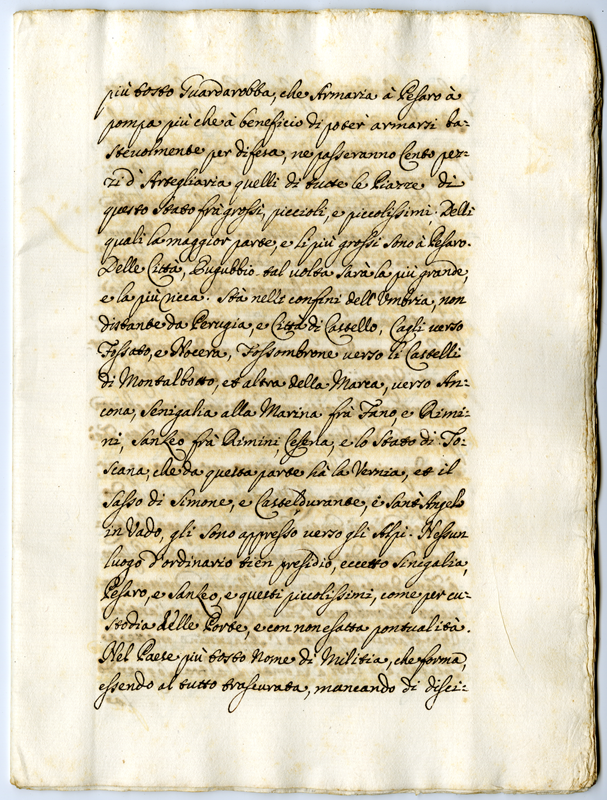 più tosto Guardarobba, che Armaria à Pesaro à
pompa più che à beneficio di poter armarsi ba-
stevolmente per difesa, ne passeranno Cento pez-
zi d'Artegliaria quelli di tutte le Piazze di
questo Stato frà grossi, piccioli, e piccolissimi. Delli
quali la maggior parte, e li più grossi sono à Pesaro.
Delle Città, Eugubbio tal volta sarà la più grande,
e la più ricca. Stà nelli confini dell'Umbria, non
distante da Perugia, e Città di Castello, Cagli verso
Fossato, e Nocera, Fossombrone verso li Castelli
di Montalbotto, et altra della Marca, verso An-
cona, Senigalia alla Marina frà Fano, e Rimi-
ni, SanLeo frà Rimini, Cesena, e lo Stato di To-
scana, che da questa parte hà la Vernia, et il
Sasso di Simone, e Casteldurante, e Sant'Angelo
in Vado, gli sono appresso verso gli Alpi. Nessun
luogo d'ordinario tien presidio, eccetto Sinigalia,
Pesaro, e SanLeo, e questi piccolissimi, come per cu-
stodia delle Porte, e con non esatta pontualità.
Nel Paese più tosto Nome di Militia, che forma,
essendo al tutto trascurata, mancando di disci-